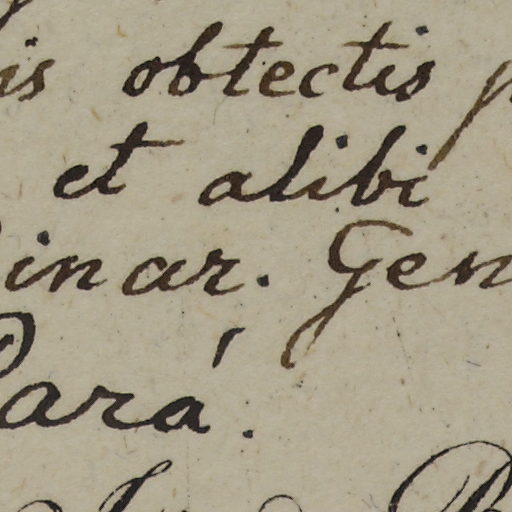 is obtectis
et alibi
inar. Gen
Pará.